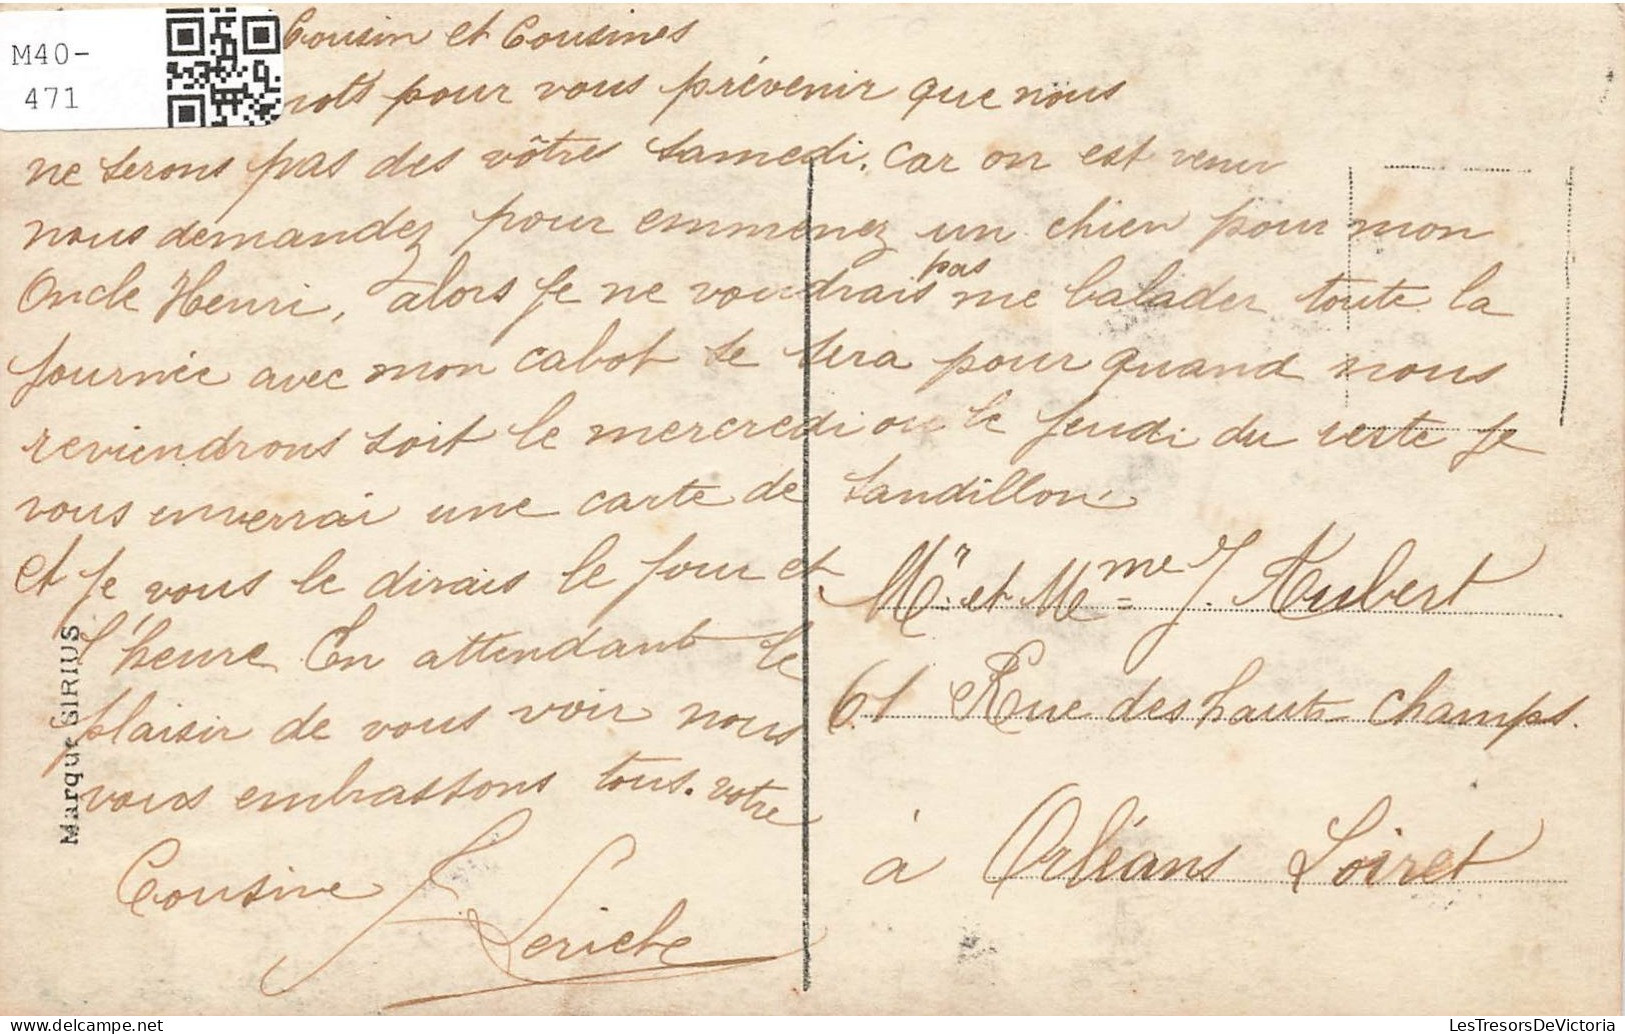 M40-
471
Cousin et Cousines
mots pour vous prévenir que nous
ne serons pas des vôtres samedi. car on est venu
nous demandez pour emmenez un chien pour mon
Oncle Henri, alors je ne voudrais pas me balader toute la
journée avec mon cabot se sera pour quand nous
reviendrons soit le mercredi ou le jeudi du reste je
vous enverrai une carte de Sandillon
et je vous le dirais le jour et
l'heure En attendant le
plaisir de vous voir nous
vous embrassons tous. votre
Cousine
Leriche
Mr et Mme J. Aubert
61 Rue des hauts champs.
à Orléans Loiret
Marque SIRIUS
LesTresorsDeVictoria
delcampe.net